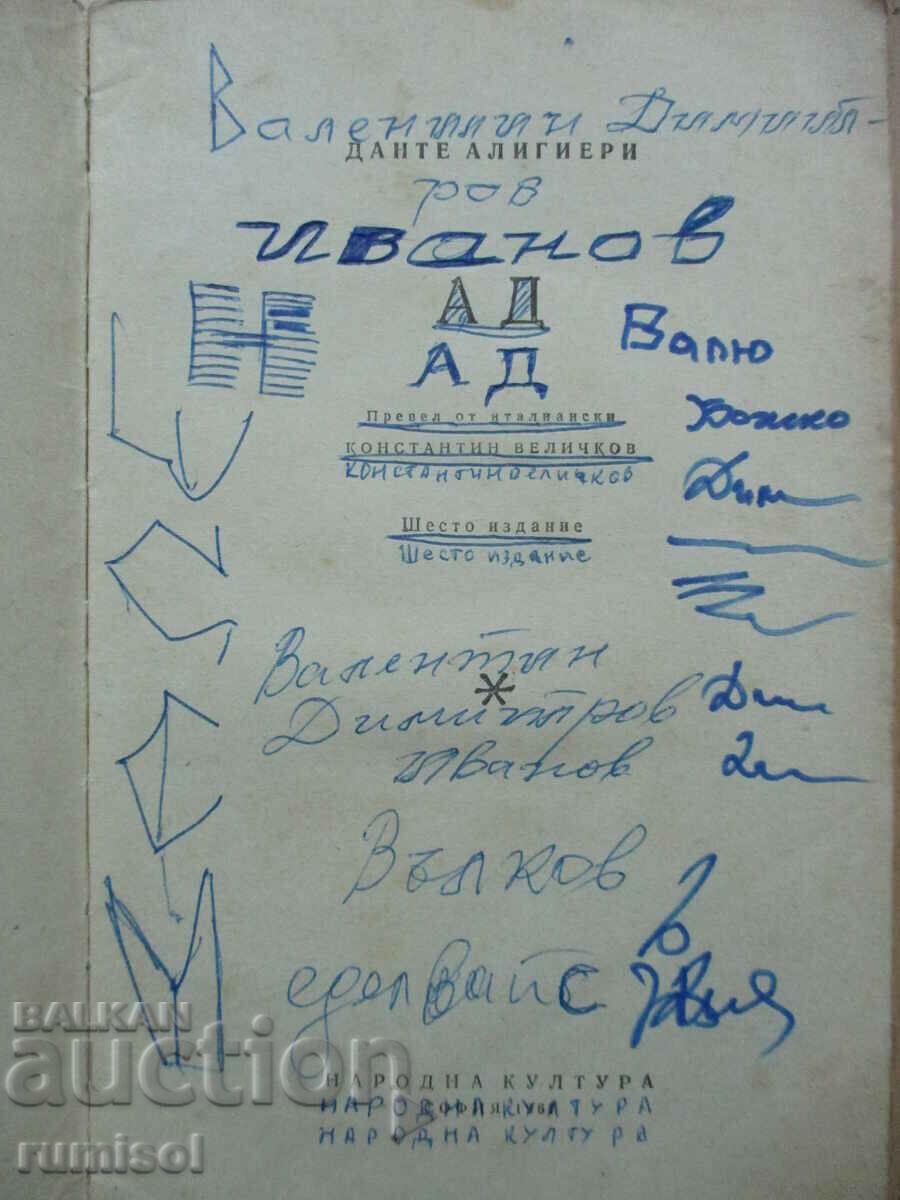 Валентин Димит-
ДАНТЕ АЛИГИЕРИ
ров
Иванов
АД
АД
Валю
Божко
Превел от италиански
КОНСТАНТИН ВЕЛИЧКОВ
КОНСТАНТИН ВЕЛИЧКОВ
Дим
Шесто издание
Шесто издание
Валентин
Димитров
Иванов
Вълков
еделвайс
НАРОДНА КУЛТУРА
НАРОДНА КУЛТУРА
НАРОДНА КУЛТУРА
BALKAN
auction
rumisol